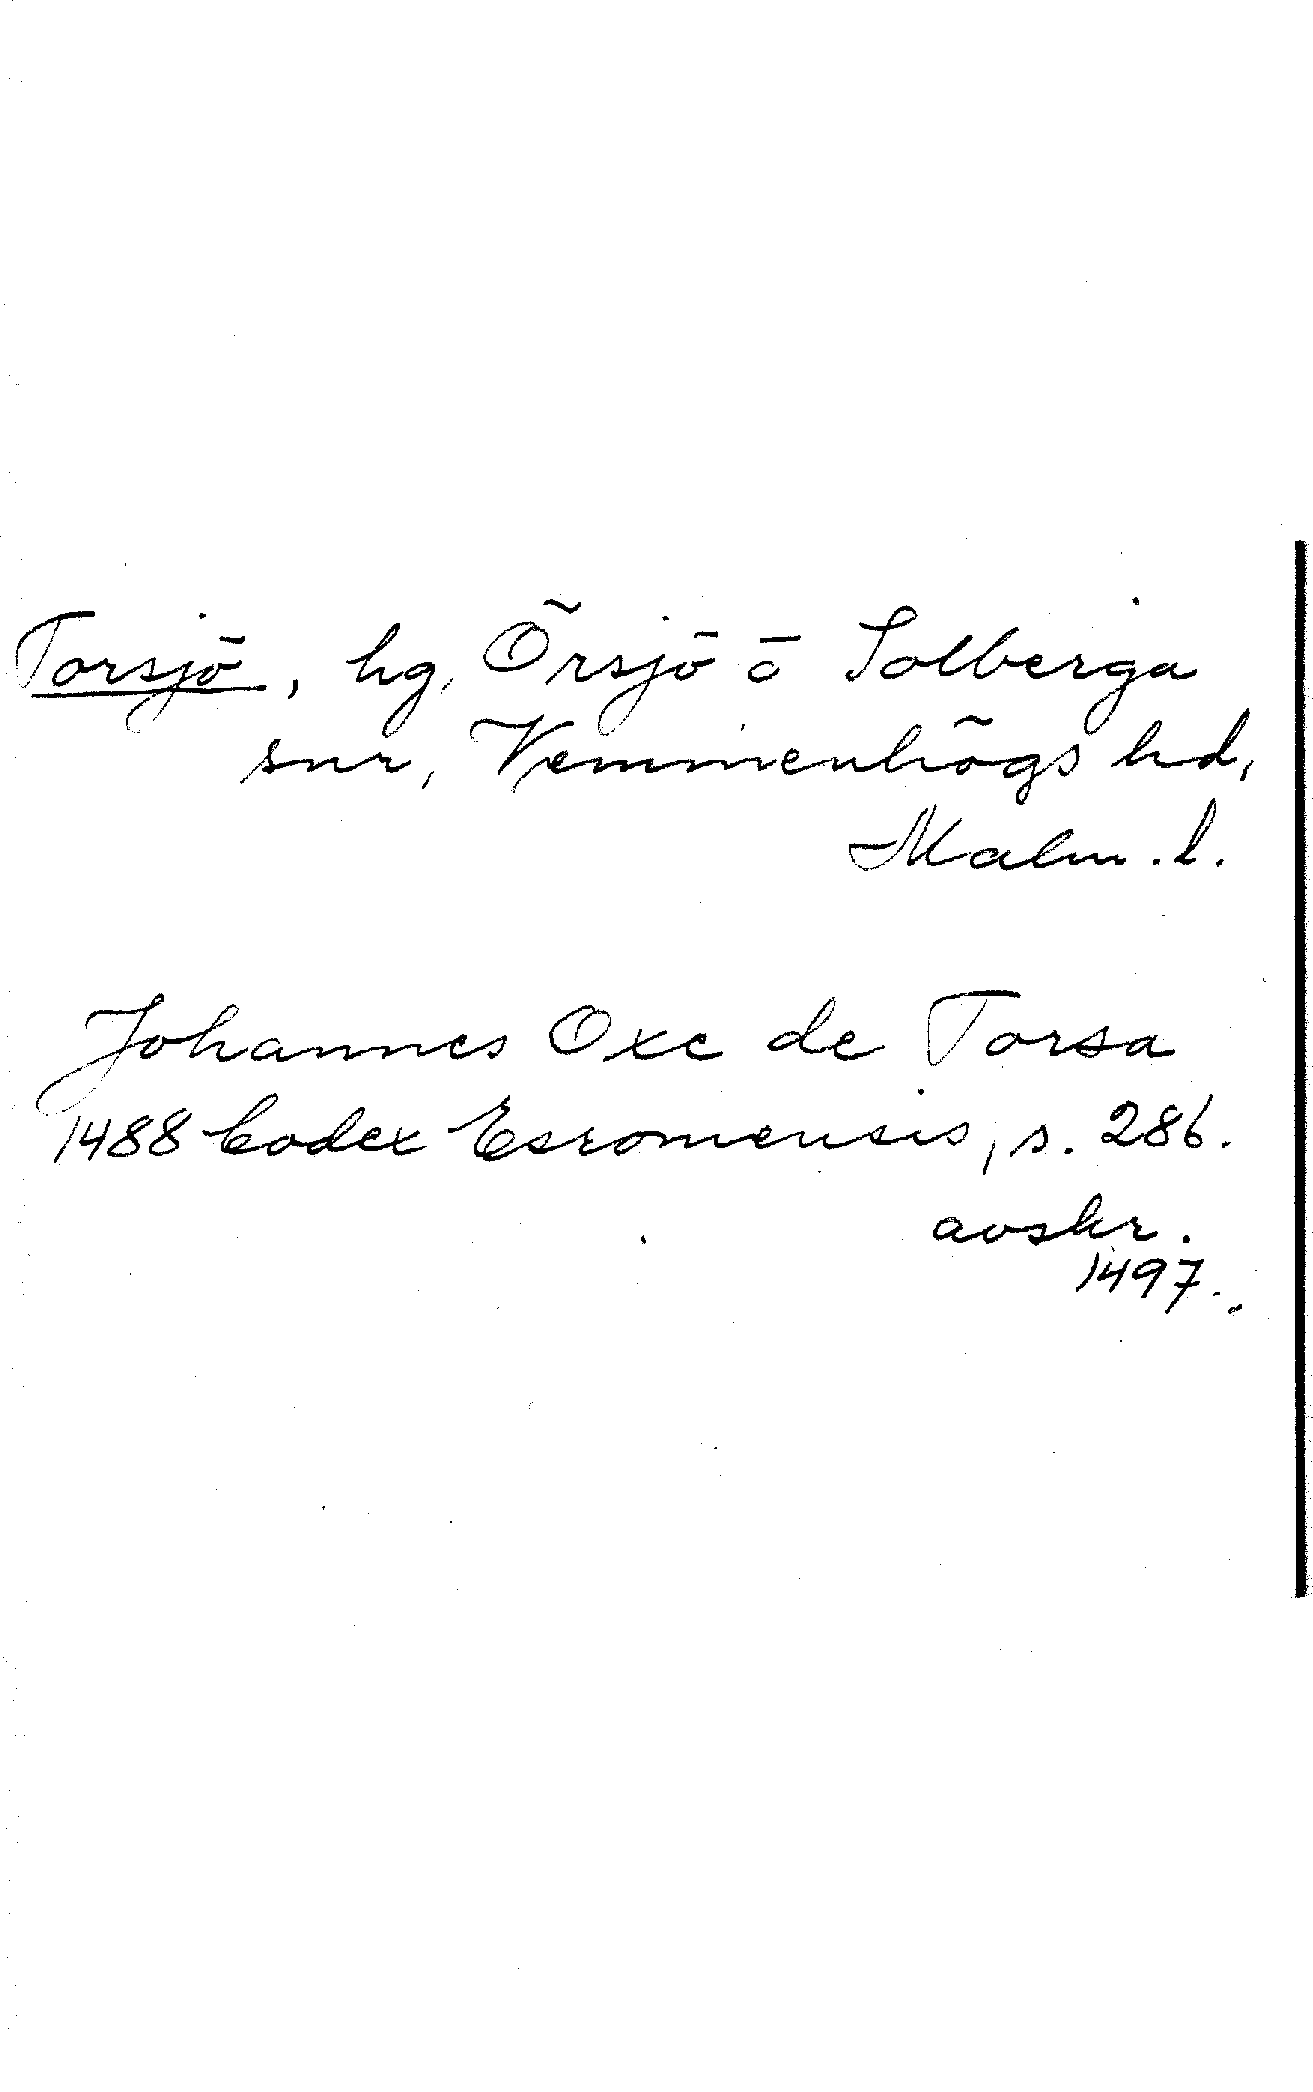 Torsjö, hg, Örsjö o Solberga
snr, Vemmenhögs hd,
Malm.l.
Johannes Oxe de Torsa
1488 Codex Esromensis, s. 286.
avskr.
1497.